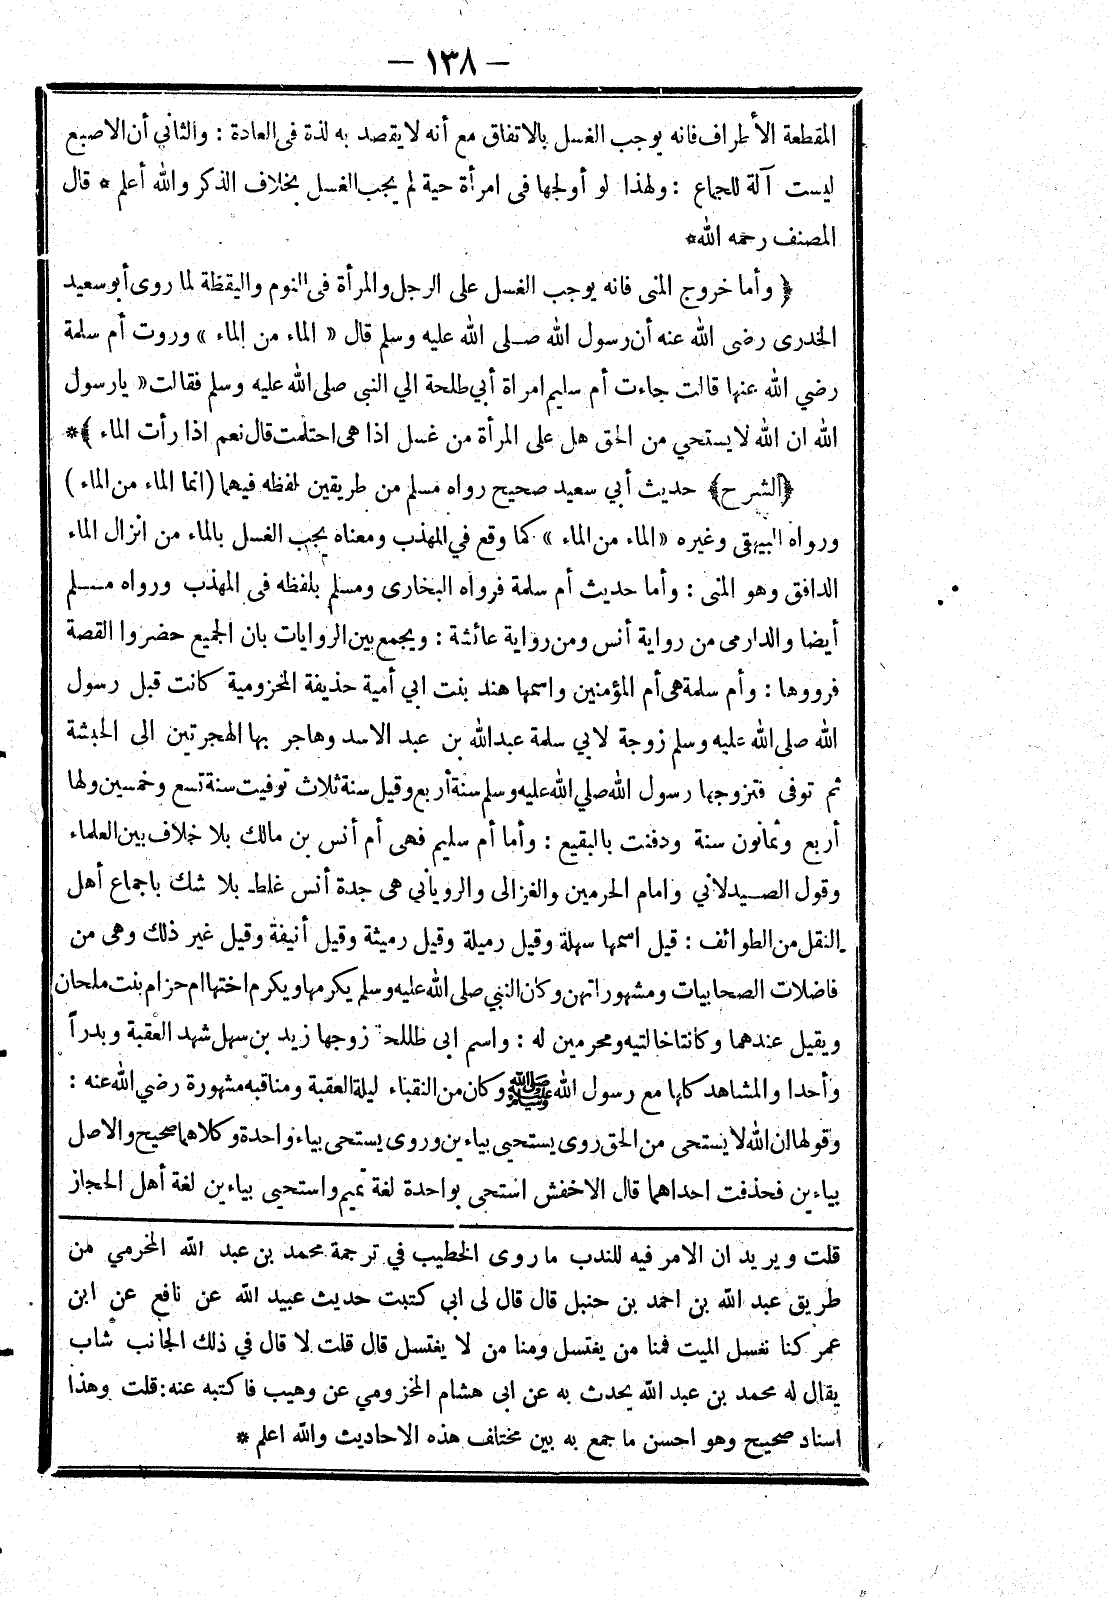 — ١٣٨ —
المقطعة الأطراف فانه يوجب الغسل بالاتفاق مع أنه لا يقصد به لذة فى العادة : والثاني أن الاصبع
ليست آلة للجماع : ولهذا لو أولجها فى امرأة حية لم يجب الغسل بخلاف الذكر والله أعلم * قال
المصنف رحمه الله*
﴿ وأما خروج المنى فانه يوجب الغسل على الرجل والمرأة فى النوم واليقظة لما روى أبو سعيد
الخدرى رضى الله عنه أن رسول الله صلى الله عليه وسلم قال « الماء من الماء » وروت أم سلمة
رضي الله عنها قالت جاءت أم سليم امراة أبي طلحة الي النبى صلى الله عليه وسلم فقالت « يارسول
الله ان الله لا يستحي من الحق هل على المرأة من غسل اذا هى احتلمت قال نعم اذا رأت الماء ﴾ *
﴿الشرح﴾ حديث أبي سعيد صحيح رواه مسلم من طريقين لفظه فيهما (انما الماء من الماء )
ورواه البيهقى وغيره «الماء من الماء » كما وقع في المهذب ومعناه يجب الغسل بالماء من انزال الماء
الدافق وهو المنى : وأما حديث أم سلمة فرواه البخارى ومسلم بلفظه فى المهذب ورواه مسلم
أيضا والدارمى من رواية أنس ومن رواية عائشة : ويجمع بين الروايات بان الجميع حضروا القصة
فرووها : وأم سلمة هى أم المؤمنين واسمها هند بنت ابي أمية حذيفة المخزومية كانت قبل رسول
الله صلى الله عليه وسلم زوجة لابي سلمة عبدالله بن عبد الاسد وهاجر بها الهجرتين الى الحبشة
ثم توفى فتزوجها رسول الله صلي الله عليه وسلم سنة أربع وقيل سنة ثلاث توفيت سنة تسع وخمسين ولها
أربع وثمانون سنة ودفنت بالبقيع : وأما أم سليم فهى أم أنس بن مالك بلا خلاف بين العلماء
وقول الصيدلاني وامام الحرمين والغزالى والروياني هى جدة أنس غلط بلا شك باجماع أهل
النقل من الطوائف : قيل اسمها سهلة وقيل رميلة وقيل رميثة وقيل أنيفة وقيل غير ذلك وهى من
فاضلات الصحابيات ومشهوراتهن وكان النبي صلى الله عليه وسلم يكرمها ويكرم اختها ام حزام بنت ملحان
ويقيل عندهما وكانتا خالتيه ومحرمين له : واسم ابى طللحة زوجها زيد بن سهل شهد العقبة وبدراً
وأحدا والمشاهد كلها مع رسول الله ﷺ وكان من النقباء ليلة العقبة ومناقبه مشهورة رضي الله عنه :
وقولها ان الله لا يستحى من الحق روى يستحيى بياءين وروى يستحى بياء واحدة وكلاهما صحيح والاصل
بياءين فحذفت احداهما قال الاخفش استحى بواحدة لغة تميم واستحيى بياءين لغة أهل الحجاز
قلت ويريد ان الامر فيه للندب ما روى الخطيب في ترجمة محمد بن عبد الله المخرمي من
طريق عبد الله بن احمد بن حنبل قال قال لى ابي كتبت حديث عبيد الله عن نافع عن ابن
عمر كنا نغسل الميت فمنا من يغتسل ومنا من لا يغتسل قال قلت لا قال في ذلك الجانب شاب
يقال له محمد بن عبد الله يحدث به عن ابى هشام المخزومي عن وهيب فاكتبه عنه: قلت وهذا
اسناد صحيح وهو احسن ما جمع به بين مختلف هذه الاحاديث والله اعلم *